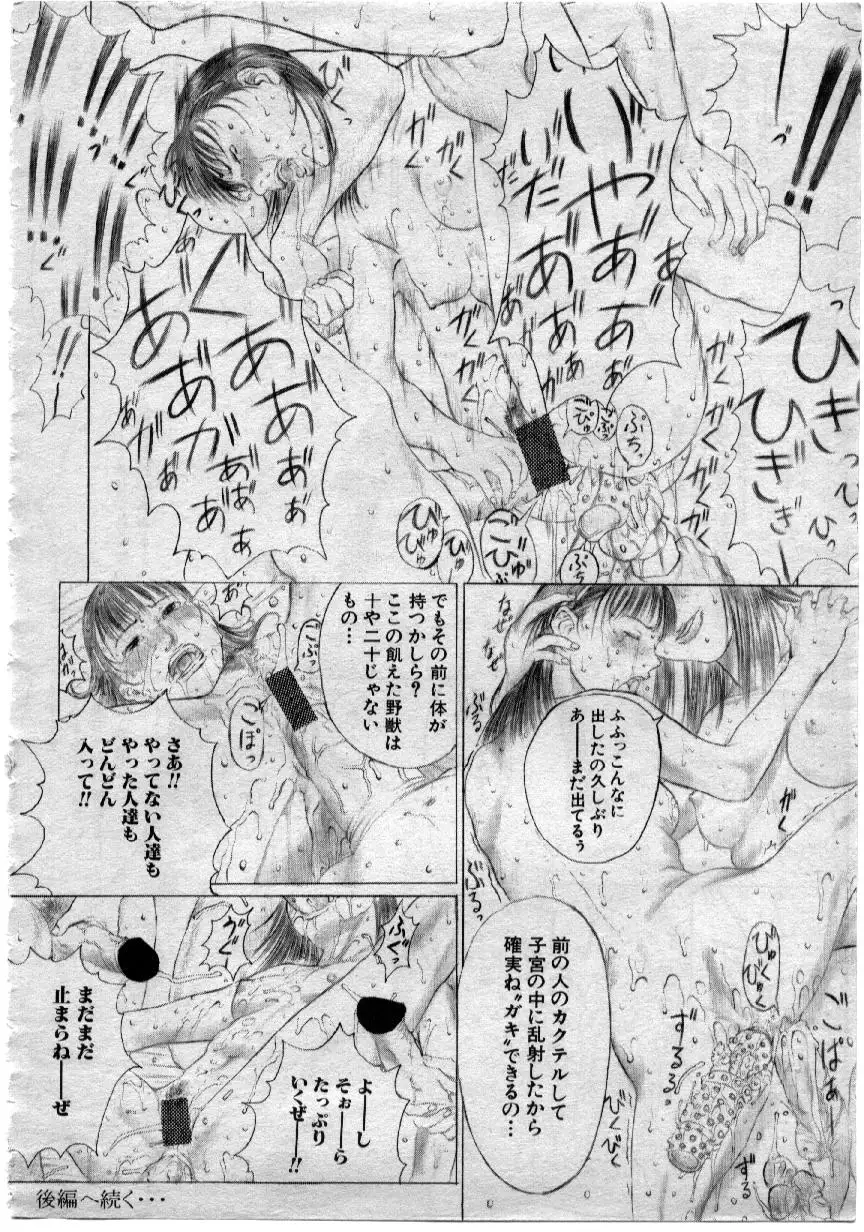 !!
っひきっ
ひぎぎ
ひっ
ひっ
いやあああ
あ
いだあああああ
びくっ
がくがく
がくがく
がくがくがく
ぐああぁぉぉ
あああがぁぁああぁ
あがぁ
ぷちっ
びゅびゅ
びゅ
ぷち
なぜ
なぜ
ぶる
ふふっこんなに
出したの久しぶり
あ――まだ出てるぅ
がく
ぶるっ
前の人のカクテルして
子宮の中に乱射したから
確実ね〝ガキ〟できるの…
びゅくびゅく
ごぱぁー
ずるる
びくびく
ずる
でもその前に体が
持つかしら?
ここの飢えた野獣は
十や二十じゃない
もの…
ごぷっ
ごぽっ
さあ!!
やってない人達も
やった人達も
どんどん
入って!!
ふぐっ
がぐ
よ――し
そぉ――ら
たっぷり
いくぜ――!!
まだまだ
止まらね――ぜ
後編へ続く・・・